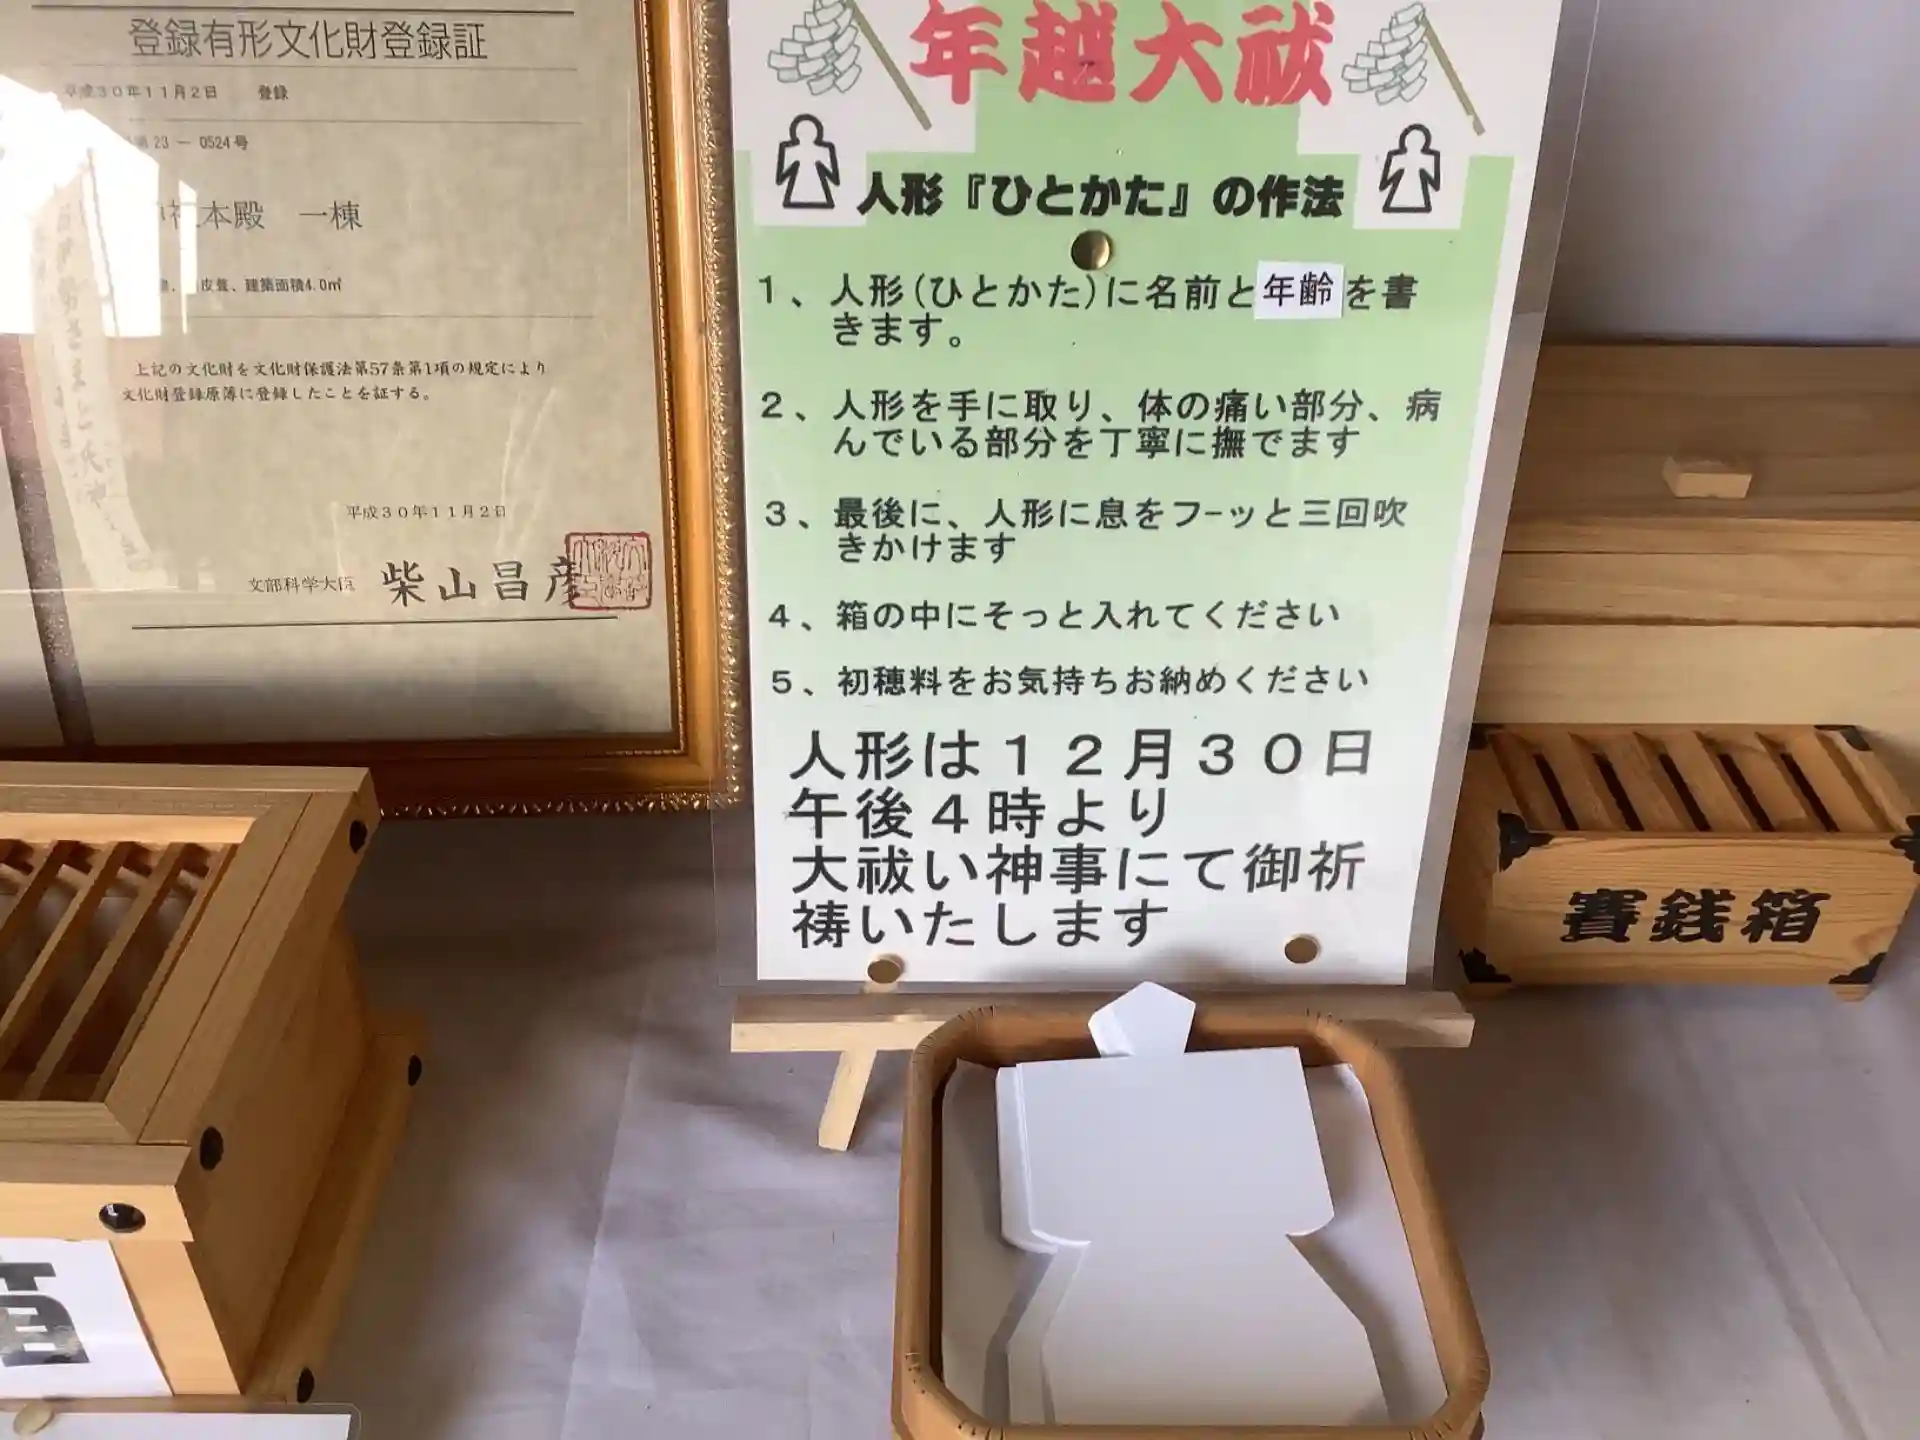 登録有形文化財登録証
平成30年11月2日 登録
第23－0524号
本殿 一棟
皮葺、建築面積4.0㎡
上記の文化財を文化財保護法第57条第1項の規定により
文化財登録原簿に登録したことを証する。
平成30年11月2日
文部科学大臣 柴山昌彦
年越大祓
人形『ひとかた』の作法
1、人形(ひとかた)に名前と年齢を書
きます。
2、人形を手に取り、体の痛い部分、病
んでいる部分を丁寧に撫でます
3、最後に、人形に息をフーッと三回吹
きかけます
4、箱の中にそっと入れてください
5、初穂料をお気持ちお納めください
人形は12月30日
午後4時より
大祓い神事にて御祈
祷いたします
賽銭箱